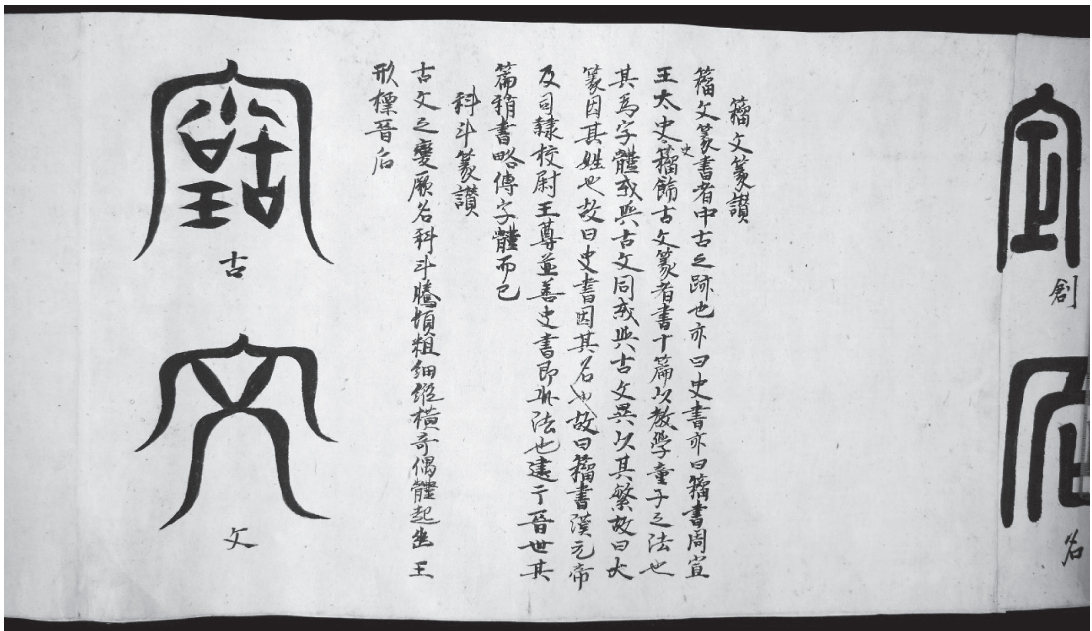 創
名
籀文篆讃
籀文篆書者中古之跡也亦曰史書亦曰籀書周宣
王太史史籀飾古文篆者書十篇以教學童子之法也
其為字體或與古文同或與古文異以其繁故曰大
篆因其姓也故曰史書因其名也故曰籀書漢元帝
及司隸校尉王尊並善史書即此法也逮于晉世其
篇稍書略傳字體而已
科斗篆讃
古文之變厥名科斗騰頓粗細縱橫奇偶體起王
形標晉后
古
文